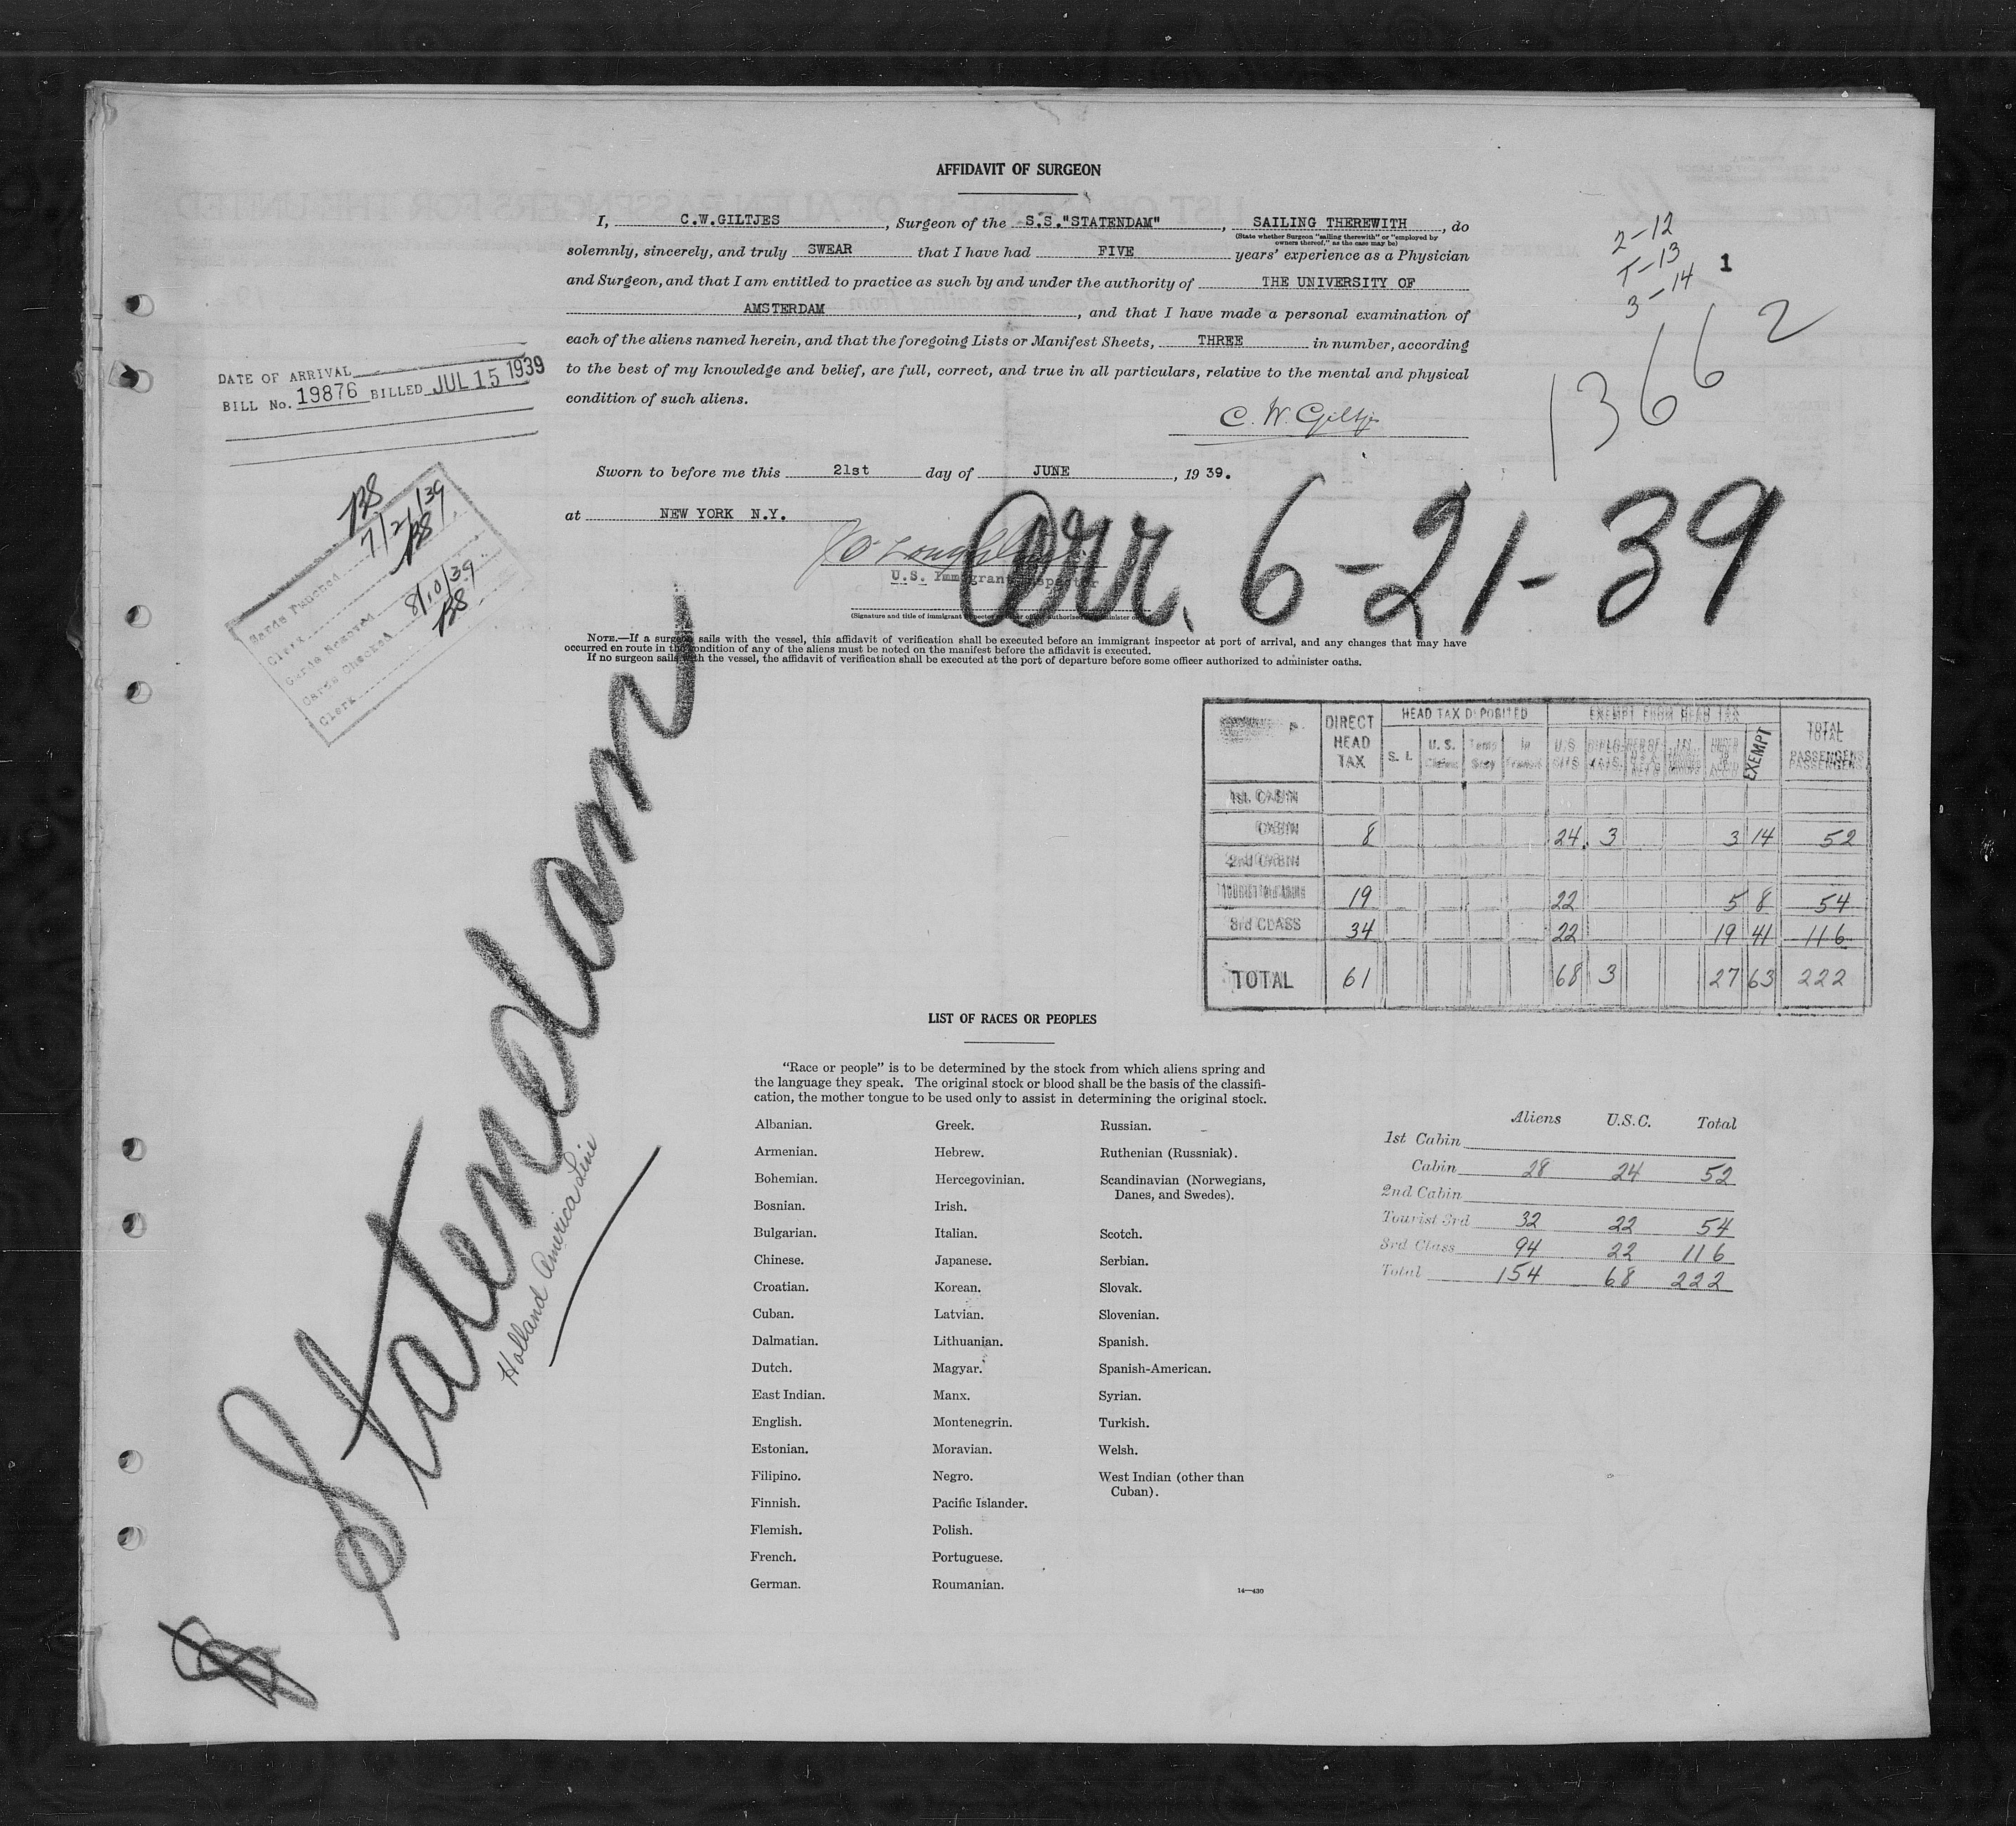 AFFIDAVIT OF SURGEON
I, C.W.GILTJES, Surgeon of the S.S."STATENDAM", SAILING THEREWITH, do
(State whether Surgeon "sailing therewith" or "employed by
owners thereof," as the case may be)
solemnly, sincerely, and truly SWEAR that I have had FIVE years' experience as a Physician
and Surgeon, and that I am entitled to practice as such by and under the authority of THE UNIVERSITY OF
AMSTERDAM, and that I have made a personal examination of
each of the aliens named herein, and that the foregoing Lists or Manifest Sheets, THREE in number, according
to the best of my knowledge and belief, are full, correct, and true in all particulars, relative to the mental and physical
condition of such aliens.
C. W. Giltjes
Sworn to before me this 21st day of JUNE, 1939.
at NEW YORK N.Y.
U.S. Immigrant Inspector
(Signature and title of immigrant inspector or other officer authorized to administer oaths)
NOTE.—If a surgeon sails with the vessel, this affidavit of verification shall be executed before an immigrant inspector at port of arrival, and any changes that may have
occurred en route in the condition of any of the aliens must be noted on the manifest before the affidavit is executed.
If no surgeon sails with the vessel, the affidavit of verification shall be executed at the port of departure before some officer authorized to administer oaths.
2-12
T-13
3-14
1
13662
Arr. 6-21-39
DATE OF ARRIVAL
BILL No. 19876 BILLED JUL 15 1939
BS
Cards Punched 7/21/39
Clerk BS
Cards Removed
Cards Checked 8/10/39
Clerk BS
Statendam
Holland America Line
DIRECT HEAD TAX HEAD TAX DEPOSITED EXEMPT FROM HEAD TAX TOTAL PASSENGERS
S. I. U. S. Claims Temp Stay In Transit U.S. CITS EXEMPT
1st. CABIN
CABIN 8 24 3 3 14 52
2nd CABIN
19 22 5 8 54
3rd CLASS 34 22 19 41 116
TOTAL 61 68 3 27 63 222
LIST OF RACES OR PEOPLES
"Race or people" is to be determined by the stock from which aliens spring and
the language they speak. The original stock or blood shall be the basis of the classifi-
cation, the mother tongue to be used only to assist in determining the original stock.
Albanian.
Armenian.
Bohemian.
Bosnian.
Bulgarian.
Chinese.
Croatian.
Cuban.
Dalmatian.
Dutch.
East Indian.
English.
Estonian.
Filipino.
Finnish.
Flemish.
French.
German.
Greek.
Hebrew.
Hercegovinian.
Irish.
Italian.
Japanese.
Korean.
Latvian.
Lithuanian.
Magyar.
Manx.
Montenegrin.
Moravian.
Negro.
Pacific Islander.
Polish.
Portuguese.
Roumanian.
Russian.
Ruthenian (Russniak).
Scandinavian (Norwegians,
Danes, and Swedes).
Scotch.
Serbian.
Slovak.
Slovenian.
Spanish.
Spanish-American.
Syrian.
Turkish.
Welsh.
West Indian (other than
Cuban).
14—430
Aliens U.S.C. Total
1st Cabin
Cabin 28 24 52
2nd Cabin
Tourist 3rd 32 22 54
3rd Class 94 22 116
Total 154 68 222